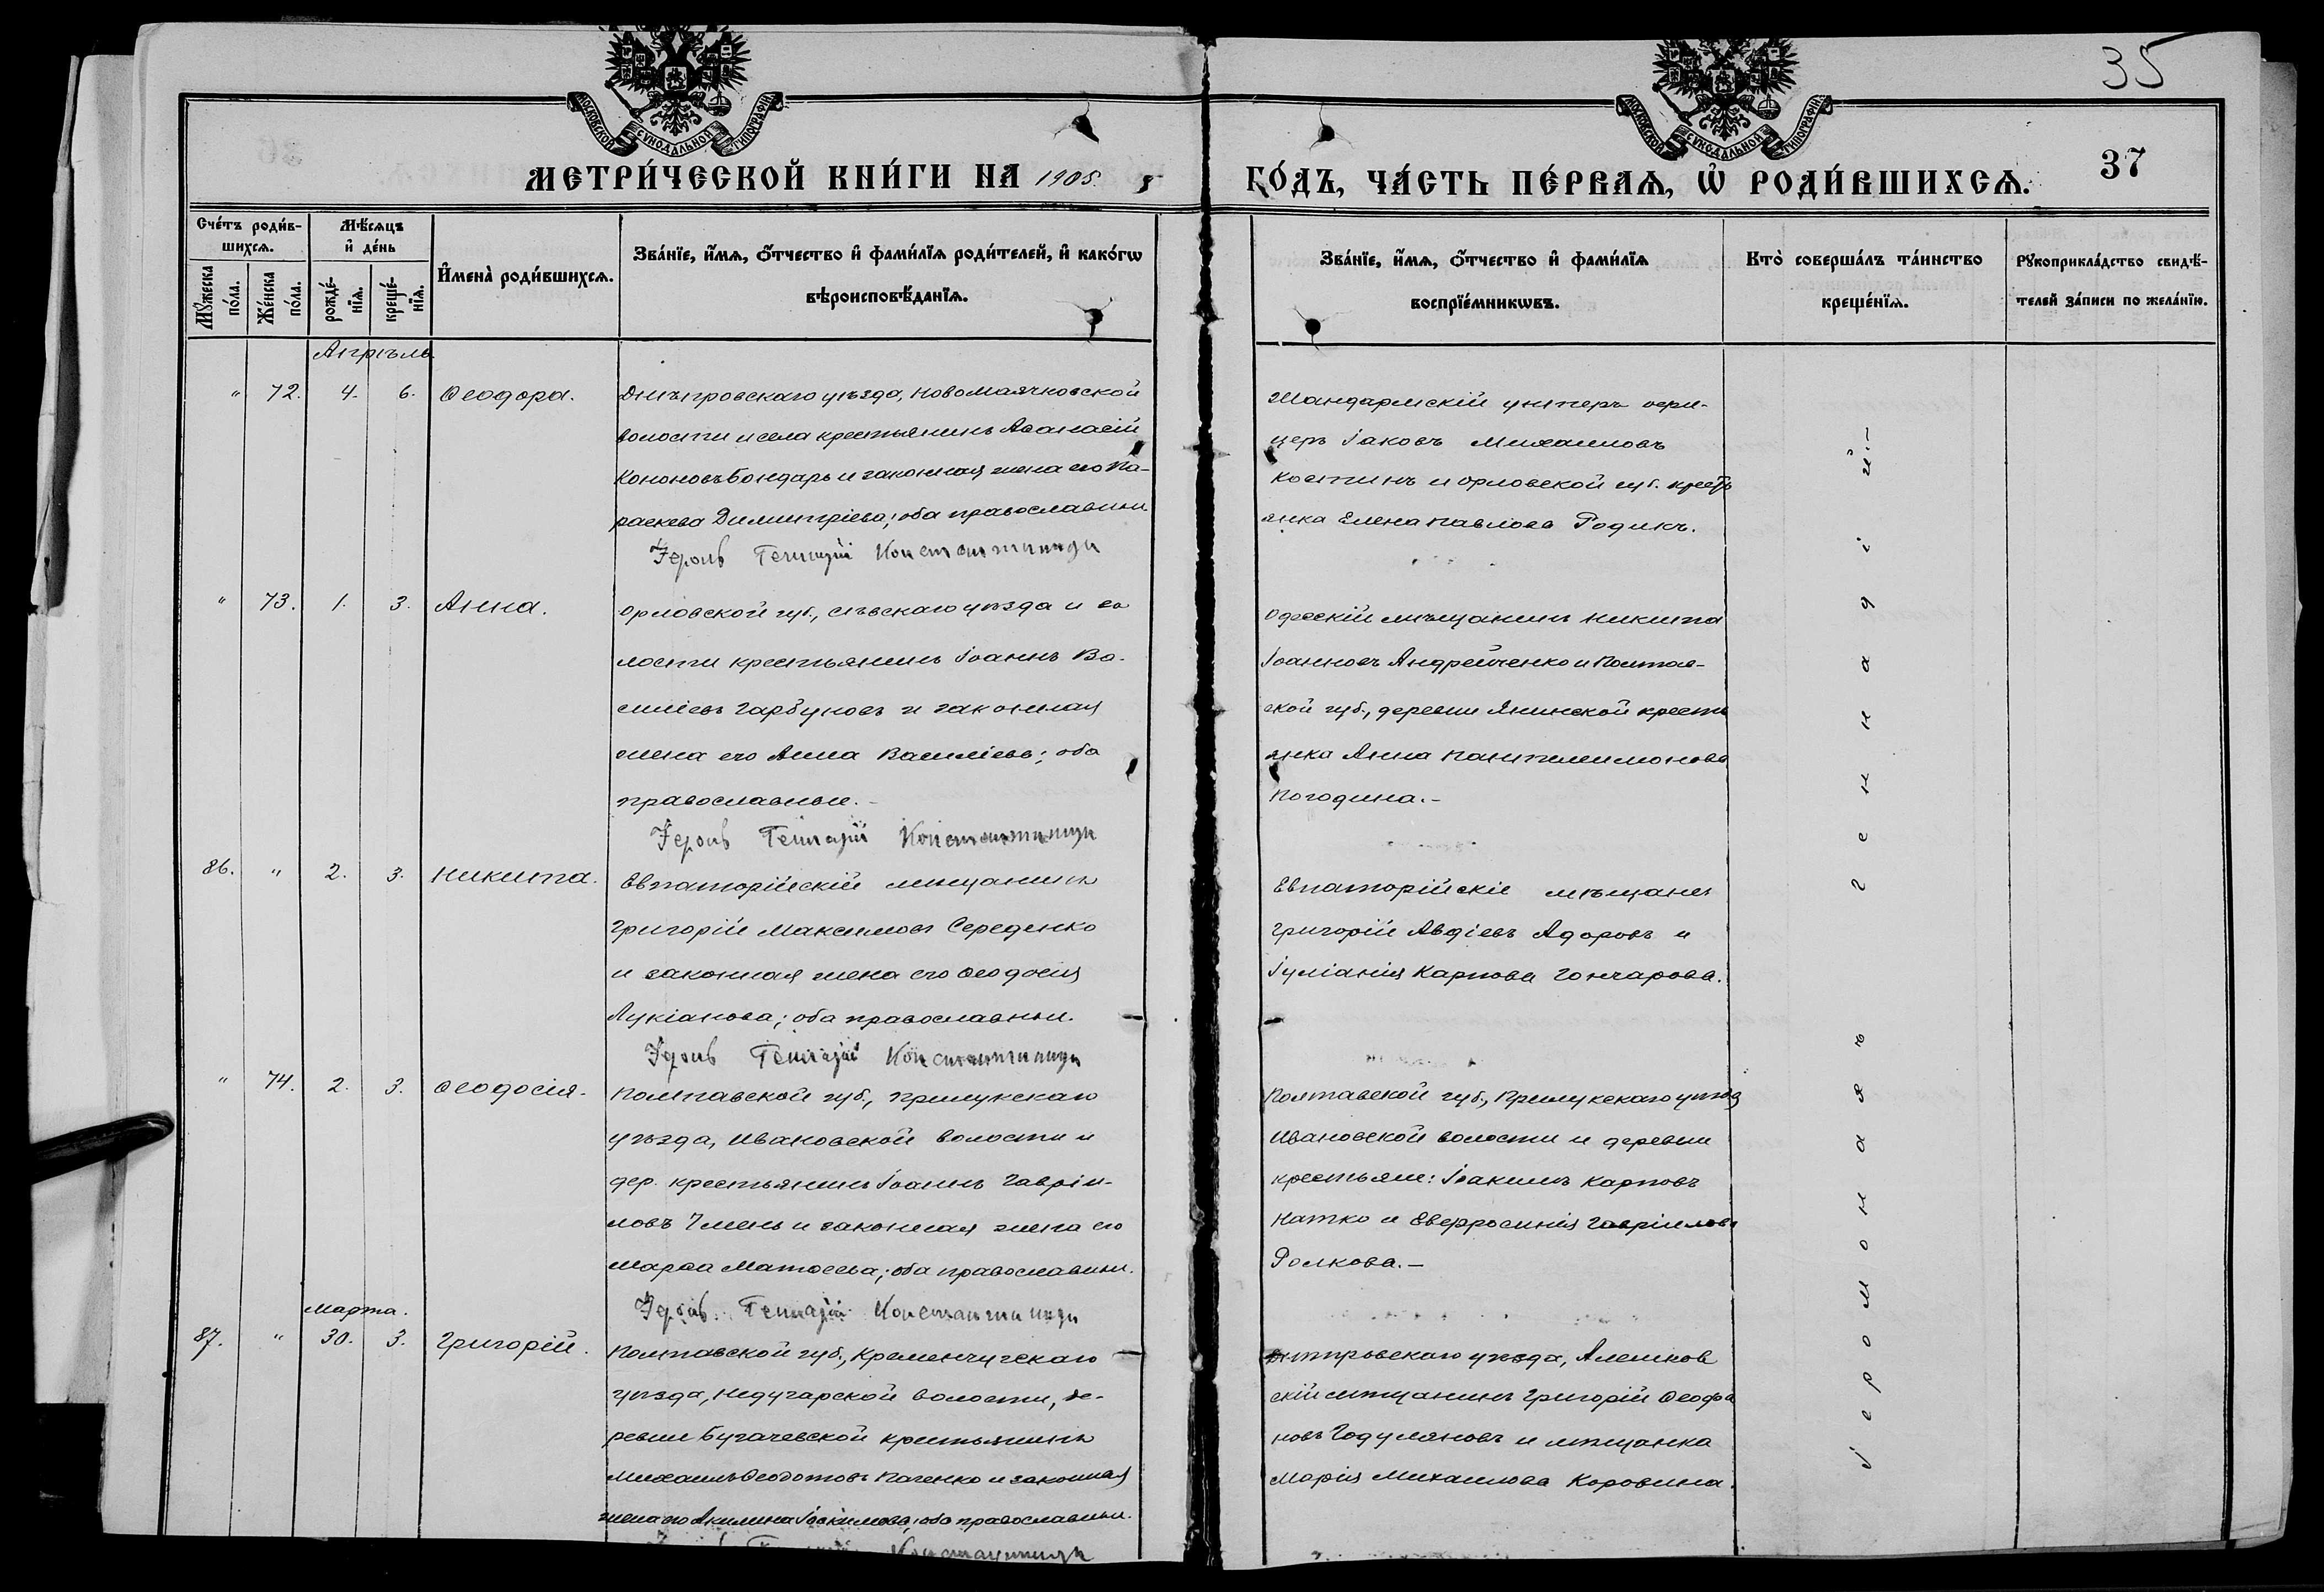 35
МОСКОВСКОЙ СѴНОДАЛЬНОЙ ТИПОГРАФІИ
МОСКОВСКОЙ СѴНОДАЛЬНОЙ ТИПОГРАФІИ
МЕТРИ́ЧЕСКОЙ КНИ́ГИ НА 1905.
ГО́ДЪ, ЧА́СТЬ ПЕ́РВАЯ, Ѡ҆ РОДИ́ВШИХСЯ.
37
Сче́тъ роди́в-
шихся.
Мꙋжеска по́ла.
Же́нска по́ла.
Мѣ́сяцъ
и҆ де́нь
рожде́-
нїя.
креще́-
нїя.
И҆мена̀ роди́вшихся.
Зва́нїе, и҆́мя, ѻ҆́тчество и҆ фами́лїя роди́телей, и҆ како́гѡ
вѣроисповѣ́данїя.
Зва́нїе, и҆́мя, ѻ҆́тчество и҆ фами́лїя
воспрїе́мникѡвъ.
Кто̀ соверша́лъ та́инство
креще́нїя.
Рꙋкоприкла́дство свидѣ́-
телей за́писи по жела́нїю.
Апрѣль
" 72. 4. 6. Ѳеодора.
Днѣпровскаго уѣзда, Новомаячковской
волости и села крестьянинъ Аѳанасій
Кононовъ Бондарь и законная жена его Па-
раскева Димитріева; оба православныи
Іером. Геннадій Константиниди
Жандармскій унтеръ офи-
церъ Іаковъ Михаиловъ
Костинъ и Орловской губ. кресть
янка Елена Павлова Родикъ.
" 73. 1. 3. Анна.
Орловской губ., Сѣвскаго уѣзда и во
лости крестьянинъ Іоаннъ Ва-
силіевъ Гарбуновъ и законная
жена его Анна Василіева; оба
православныи.
Іером. Геннадій Константиниди
Одесскій мѣщанинъ Никита
Іоанновъ Андрейченко и Полтав-
ской губ., деревни Янинской кресть
янка Анна Пантелеимонова
Погодина.-
86. " 2. 3. Никита.
Евпаторійскій мѣщанинъ
Григорій Максимовъ Середенко
и законная жена его Ѳеодосія
Лукіанова; оба православныи.
Іером. Геннадій Константиниди
Евпаторійскіе мѣщане
Григорій Авдіевъ Адоровъ и
Іуліанія Карпова Гончарова.
" 74. 2. 3. Ѳеодосія.
Полтавской губ., Прилукскаго
уѣзда, Ивановской волости и
дер. крестьянинъ Іоаннъ Гавріи-
ловъ и законная жена его
Марѳа Матѳеева; оба православныи.
Іером. Геннадій Константиниди
Полтавской губ., Прилукскаго уѣзда
Ивановской волости и деревни
крестьяне: Іоакимъ Карповъ
Натко и Евфросинія Гавріилова
Ролкова.-
марта.
87. " 30. 3. Григорій.
Полтавской губ., Кременчугскаго
уѣзда, Недугарской волости, де-
ревни Бугачевской крестьянинъ
Михаилъ Ѳеодотовъ Паченко и законная
жена его Акилина Іоакимова; оба православныи.
Константиниди
Днѣпровскаго уѣзда, Алешков
скій мѣщанинъ Григорій Ѳеофа
новъ Годуляновъ и мѣщанка
Марія Михаилова Коровина.
Іеромонахъ Геннадій.-